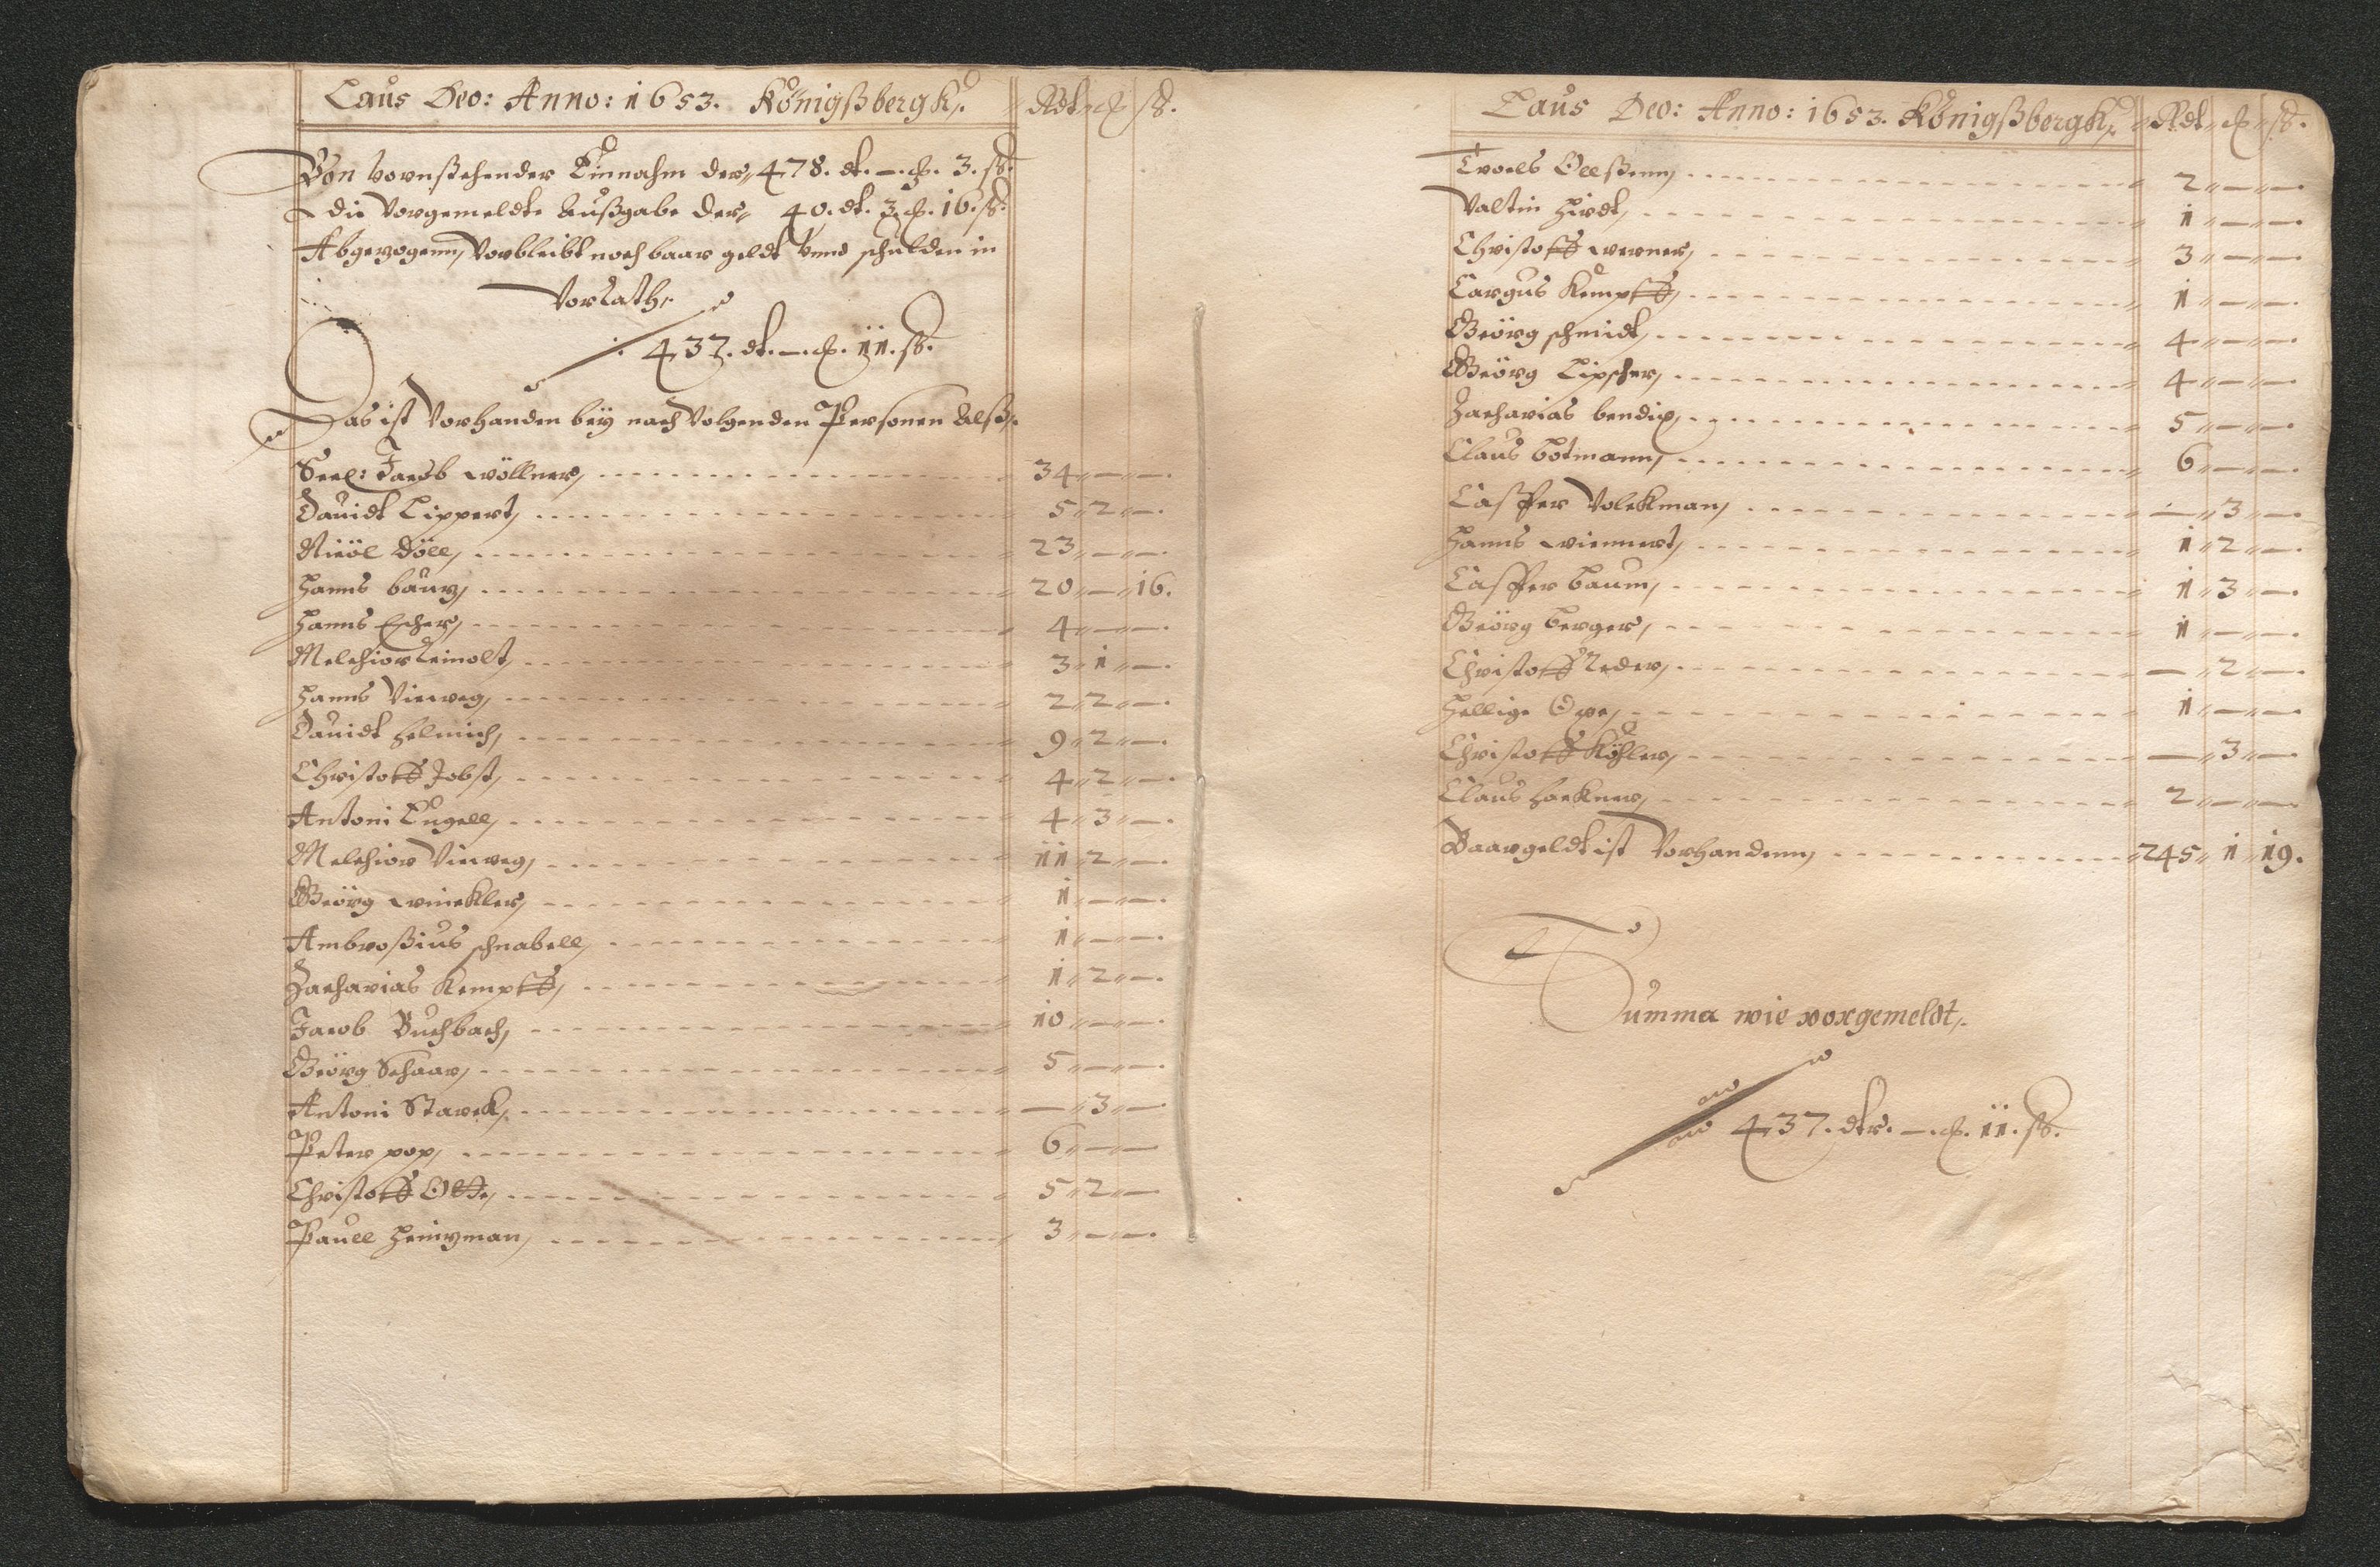 Laus Deo: Anno: 1653. Königßbergk. Rdt. ȹ. ß.
Von vornstehender Einnahm der 478. dt. —. ȹ. 3. ß.
die Vorgemeldte Außgabe der 40. dt. 3. ȹ. 16. ß.
Abgezogenn, Vorbleibt noch baar geldt Vnnd schulden in
Vorrath,
437. dt. —. ȹ. 11. ß.
Das ist Vorhanden beÿ nach Volgenden Personen Alß,
Seel: Jacob wöllner, 34 — —.
Dauidt Lippert, 5 2 —.
Nicöl Döll, 23 — —.
Hanns baur, 20 — 16.
Hanns Escher, 4 — —.
Melchior Reinolt, 3 1 —.
Hanns Vieweg, 2 2 —.
Dauidt Helmich, 9 2 —.
Christoff Jobst, 4 2 —.
Antoni Engell, 4 3 —.
Melchior Vieweg, 11 2 —.
Geörg winckler, 1 — —.
Ambroßius schnabell, 1 — —.
Zacharias Kempff, 1 2 —.
Jacob Buchbach, 10 — —.
Geörg Schaar, 5 — —.
Antoni Starck, — 3 —.
Peter pop, 6 — —
Christoff Otte, 5 2 —
Pauell Heinzman, 3 — —.
Laus Deo: Anno: 1653. Königßbergk. Rdt. ȹ. ß.
Troels Oelßenn, 2 — —.
Valtin Hirdt, 1 — —.
Christoff werner, 3 — —.
Largus Kempff, 1 — —.
Geörg schmidt, 4 — —.
Geörg Lipscher, 4 — —.
Zacharias bendix, 5 — —.
Claus botmann, 6 — —.
Casper Volckman, — 3 —.
Hanns wiennert, 1 2 —.
Casper baum, 1 3 —.
Geörg berger, 1 — —.
Christoff Reder, — 2 —.
Hellige Owe, 1 — —.
Christoff Köhler, — 3 —.
Claus Hackner, 2 — —.
Baargeldt ist Vorhandenn, 245 1 19.
Summa wie vorgemeldt,
437. dtr. —. ȹ. 11. ß.